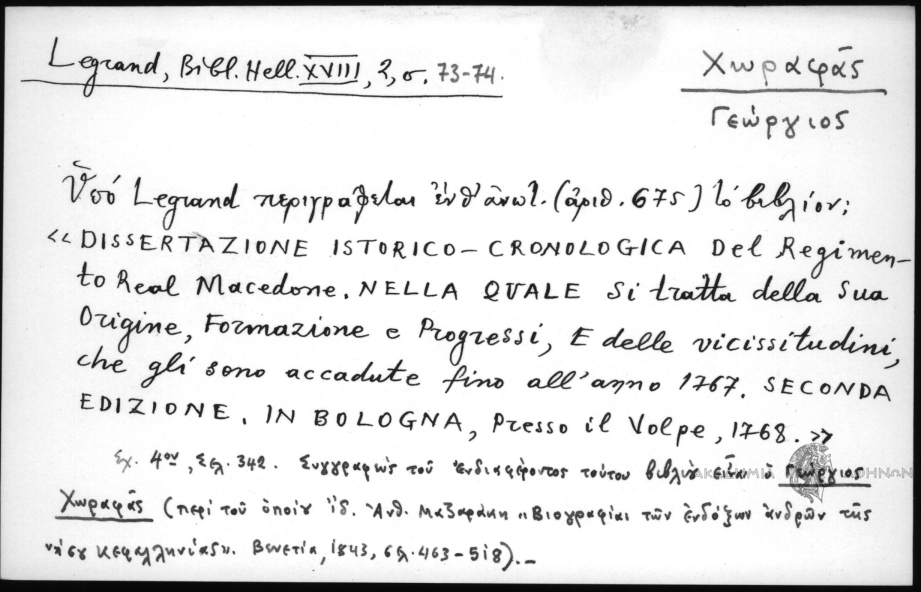 Legrand, Bibl. Hell. XVIII, 2, σ. 73-74.
Χωραφᾶς
Γεώργιος
Ὑπό Legrand περιγράφεται ἐνθ' ἀνωτ. (ἀριθ. 675) τό βιβλίον;
«DISSERTAZIONE ISTORICO-CRONOLOGICA Del Regimen-
to Real Macedone. NELLA QVALE Si tratta della Sua
Origine, Formazione e Progressi, E delle vicissitudini,
che gli sono accadute fino all'anno 1767. SECONDA
EDIZIONE. IN BOLOGNA, Presso il Volpe, 1768.»
Σχ. 4ον, Σελ. 342. Συγγραφεὺς τοῦ ἐνδιαφέροντος τούτου βιβλίου εἶναι ὁ Γεώργιος
Χωραφᾶς (περί τοῦ ὁποίου ἰδ. Ἀνθ. Μαζαράκη «Βιογραφίαι τῶν ἐνδόξων ἀνδρῶν τῆς
νήσου Κεφαλληνίας». Βενετία, 1843, σελ. 463-518).-